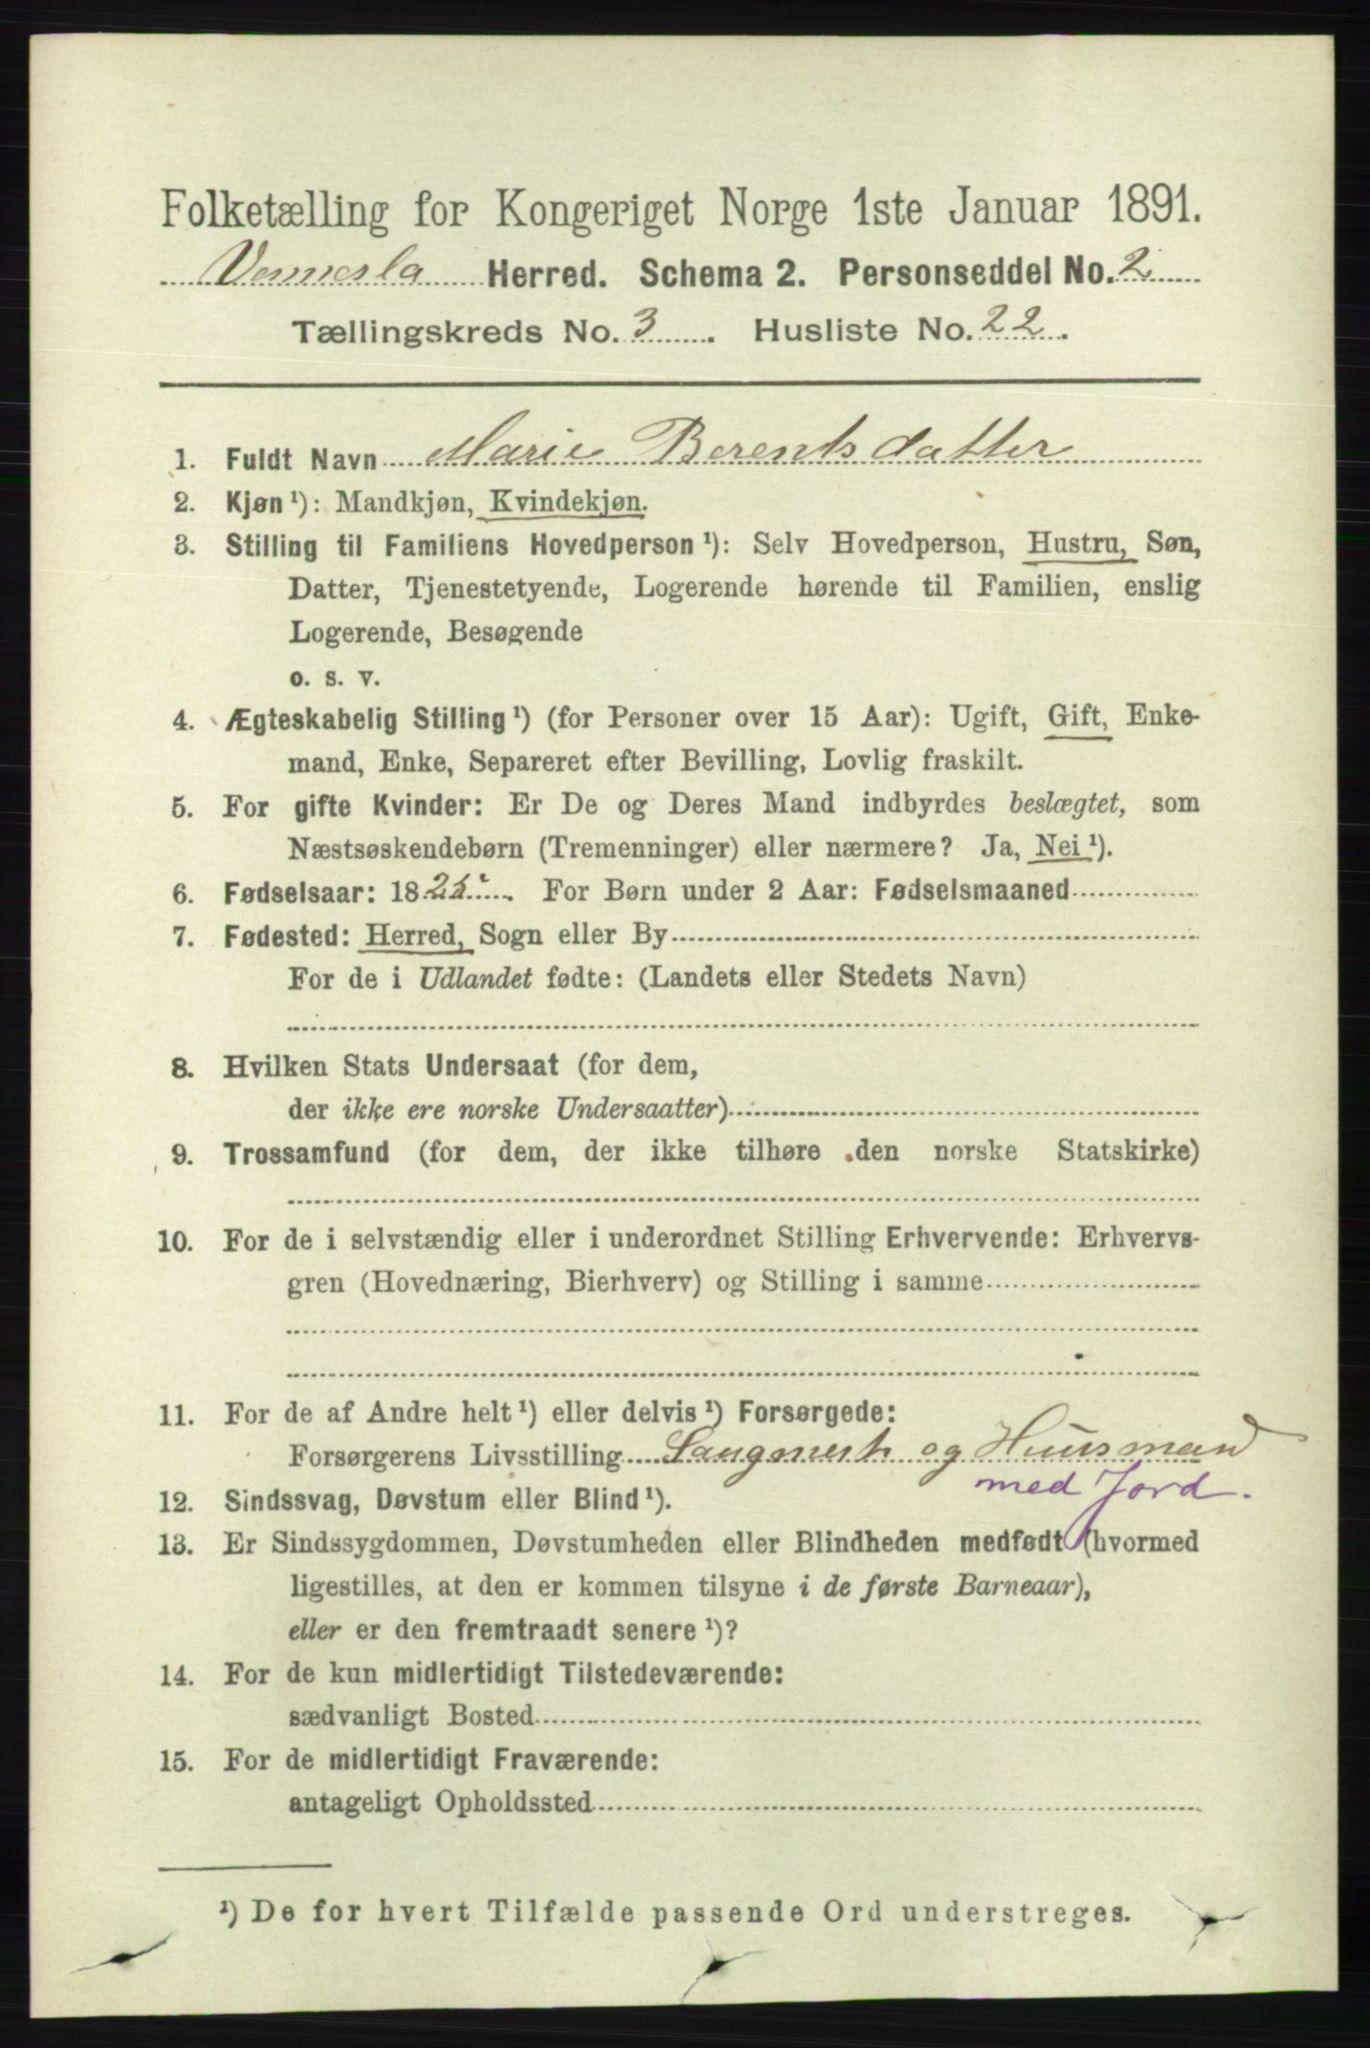 Folketælling for Kongeriget Norge 1ste Januar 1891.
Vennesla Herred. Schema 2. Personseddel No. 2
Tællingskreds No. 3. Husliste No. 22.
1. Fuldt Navn Marie Berentsdatter
2. Kjøn ¹): Mandkjøn, Kvindekjøn.
3. Stilling til Familiens Hovedperson ¹): Selv Hovedperson, Hustru, Søn,
Datter, Tjenestetyende, Logerende hørende til Familien, enslig
Logerende, Besøgende
o. s. v.
4. Ægteskabelig Stilling ¹) (for Personer over 15 Aar): Ugift, Gift, Enke-
mand, Enke, Separeret efter Bevilling, Lovlig fraskilt.
5. For gifte Kvinder: Er De og Deres Mand indbyrdes beslægtet, som
Næstsøskendebørn (Tremenninger) eller nærmere? Ja, Nei ¹).
6. Fødselsaar: 1825. For Børn under 2 Aar: Fødselsmaaned
7. Fødested: Herred, Sogn eller By
For de i Udlandet fødte: (Landets eller Stedets Navn)
8. Hvilken Stats Undersaat (for dem,
der ikke ere norske Undersaatter)
9. Trossamfund (for dem, der ikke tilhøre den norske Statskirke)
10. For de i selvstændig eller i underordnet Stilling Erhvervende: Erhvervs-
gren (Hovednæring, Bierhverv) og Stilling i samme
11. For de af Andre helt ¹) eller delvis ¹) Forsørgede:
Forsørgerens Livsstilling og Huusmand
med Jord.
12. Sindssvag, Døvstum eller Blind ¹).
13. Er Sindssygdommen, Døvstumheden eller Blindheden medfødt (hvormed
ligestilles, at den er kommen tilsyne i de første Barneaar),
eller er den fremtraadt senere ¹)?
14. For de kun midlertidigt Tilstedeværende:
sædvanligt Bosted
15. For de midlertidigt Fraværende:
antageligt Opholdssted
¹) De for hvert Tilfælde passende Ord understreges.